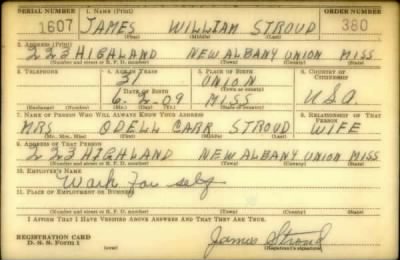 SERIAL NUMBER 1. NAME (Print) ORDER NUMBER
1607 JAMES WILLIAM STROUD 380
(First) (Middle) (Last)
2. ADDRESS (Print)
223 HIGHLAND NEW ALBANY UNION MISS.
(Number and street or R. F. D. number) (Town) (County) (State)
3. TELEPHONE 4. AGE IN YEARS 5. PLACE OF BIRTH 6. COUNTRY OF CITIZENSHIP
31 UNION
DATE OF BIRTH (Town or county)
6-2-09 MISS. U.S.A.
(Exchange) (Number) (Mo.) (Day) (Yr.) (State or country)
7. NAME OF PERSON WHO WILL ALWAYS KNOW YOUR ADDRESS 8. RELATIONSHIP OF THAT PERSON
MRS ODELL CARR STROUD WIFE
(Mr., Mrs., Miss) (First) (Middle) (Last)
9. ADDRESS OF THAT PERSON
223 HIGHLAND NEW ALBANY UNION MISS
(Number and street or R. F. D. number) (Town) (County) (State)
10. EMPLOYER'S NAME
Work for self
11. PLACE OF EMPLOYMENT OR BUSINESS
(Number and street or R. F. D. number) (Town) (County) (State)
I AFFIRM THAT I HAVE VERIFIED ABOVE ANSWERS AND THAT THEY ARE TRUE.
REGISTRATION CARD
D. S. S. Form 1 (over) James Stroud
(Registrant's signature)